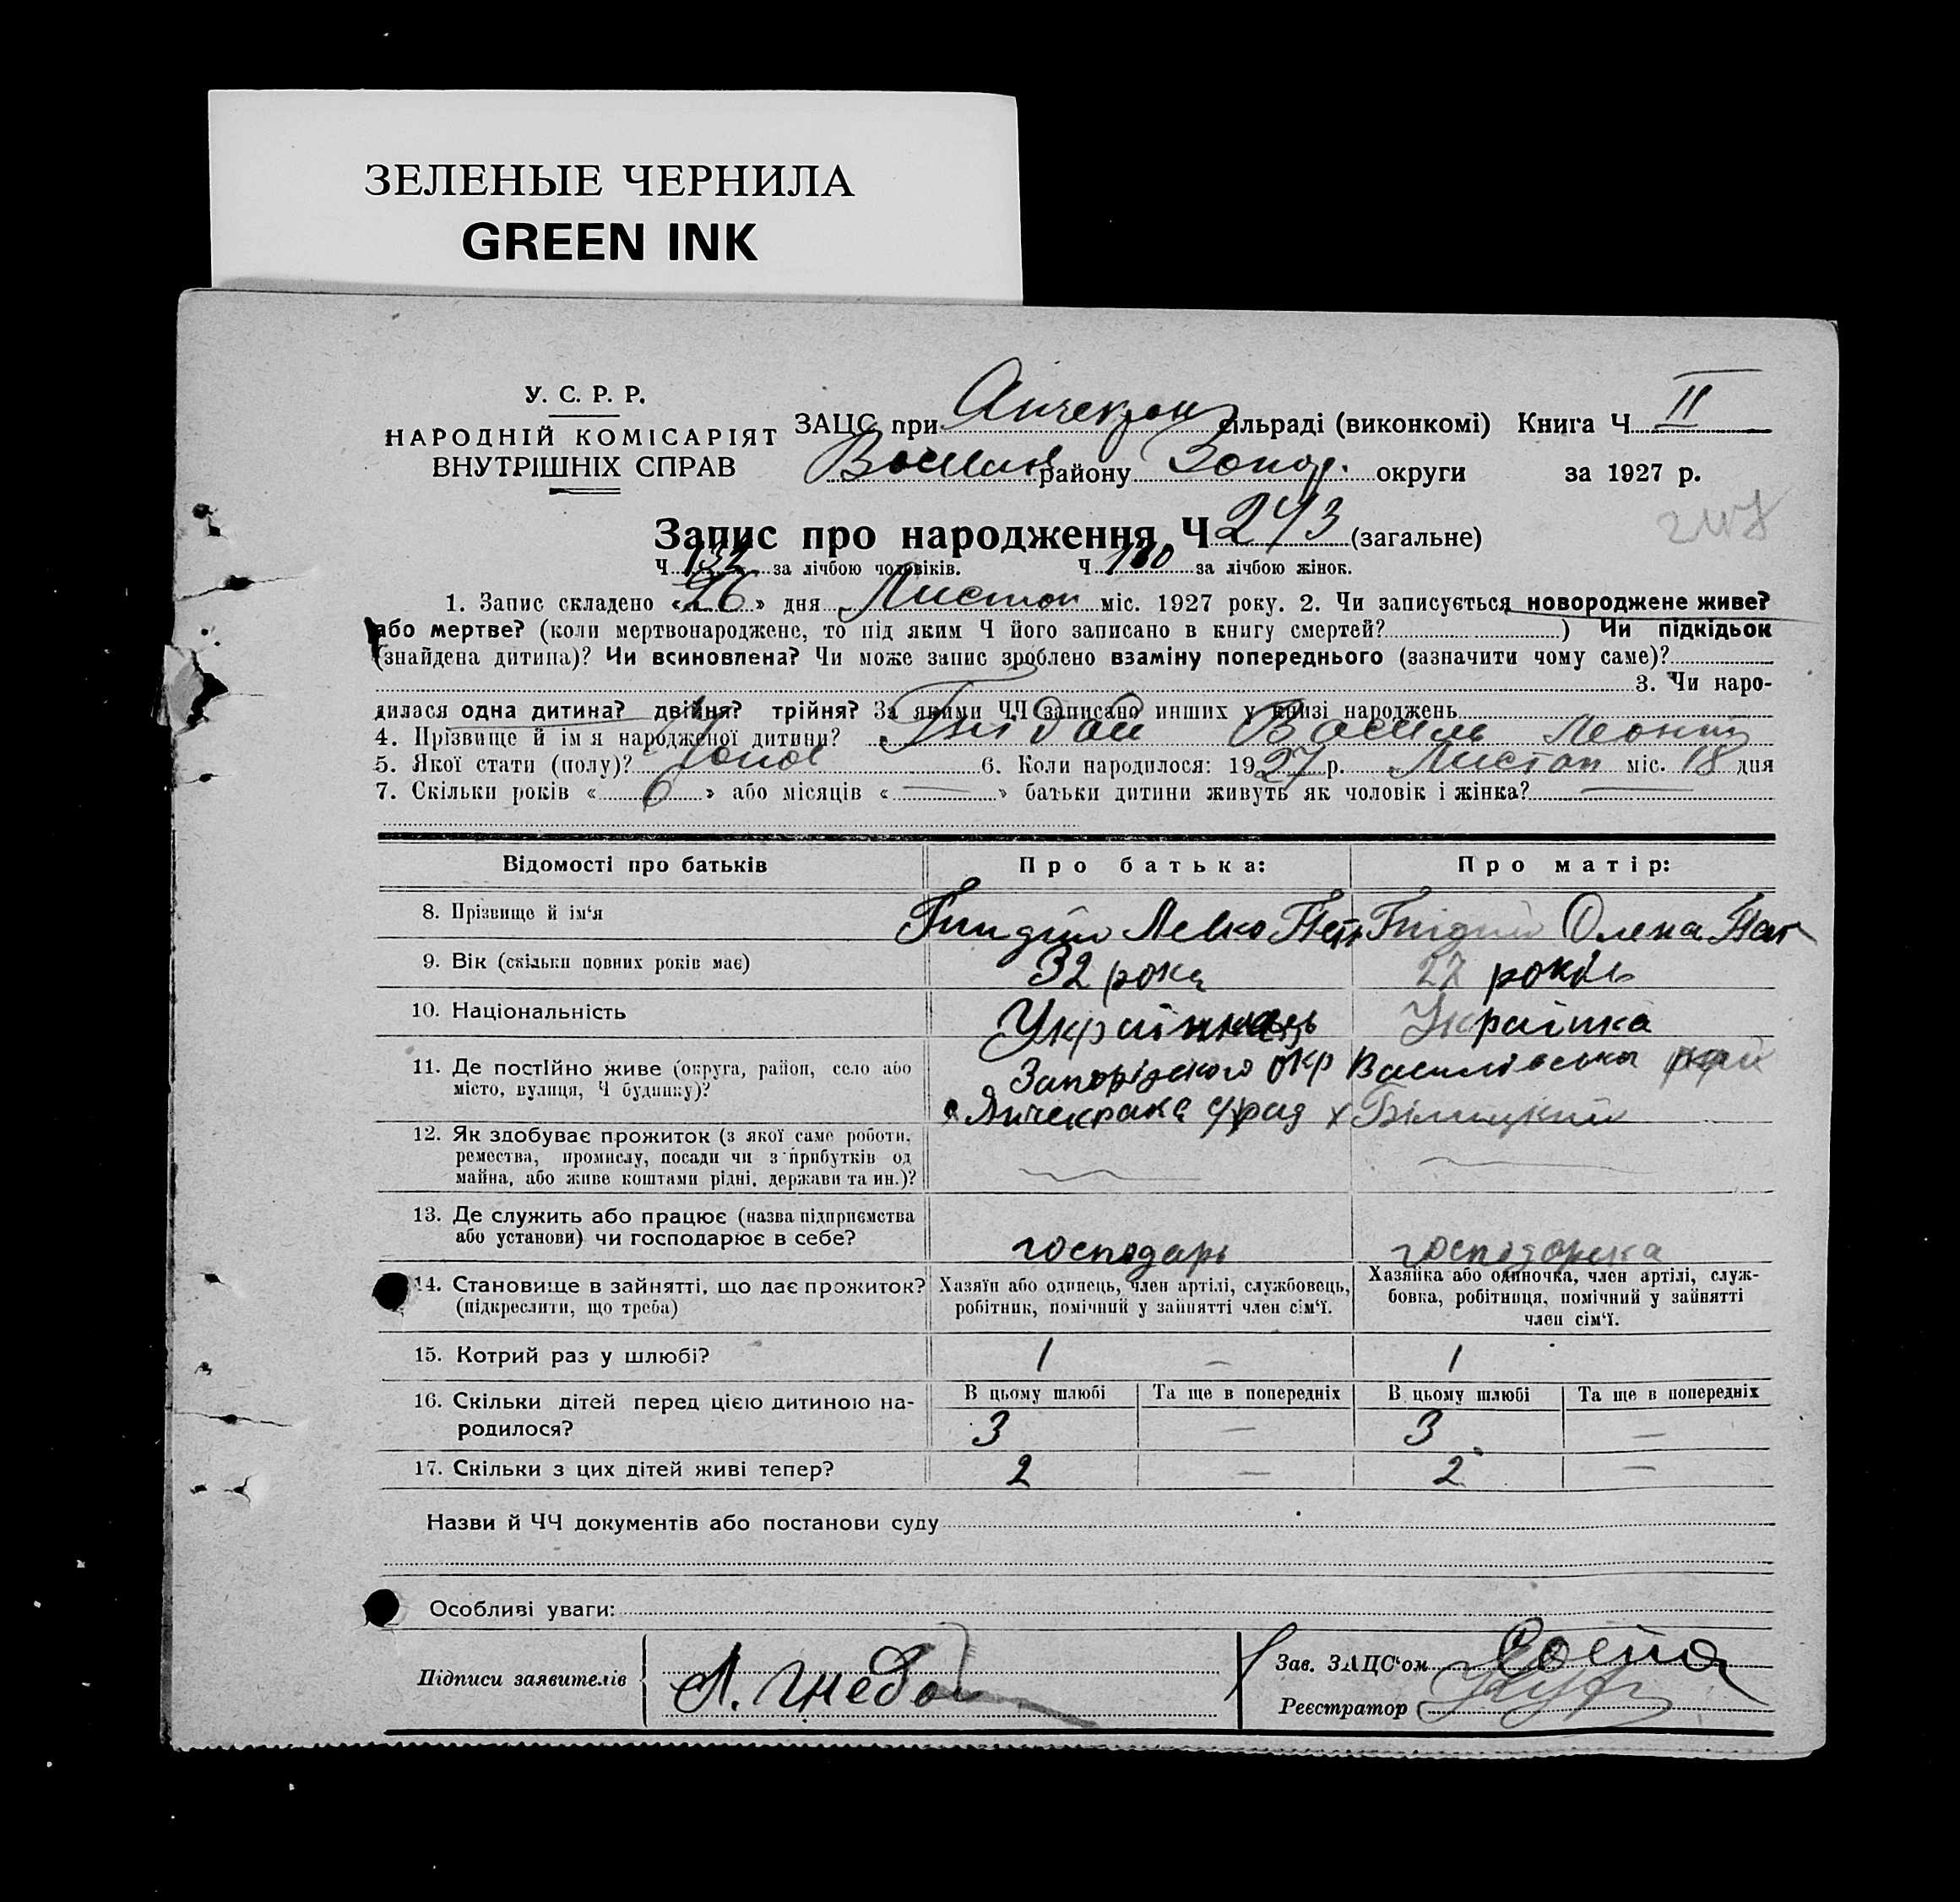 ЗЕЛЕНЫЕ ЧЕРНИЛА
GREEN INK
У. С. Р. Р.
НАРОДНІЙ КОМІСАРІЯТ
ВНУТРІШНІХ СПРАВ
ЗАЦС при Янчекрак сільраді (виконкомі) Книга Ч. II
Васил району Запор. округи за 1927 р.
Запис про народження Ч 243 (загальне)
Ч. 132 за лічбою чоловіків. Ч за лічбою жінок.
1. Запис складено «26» дня Листоп міс. 1927 року. 2. Чи записується новороджене живе?
або мертве? (коли мертвонароджене, то під яким Ч його записано в книгу смертей?) Чи підкідьок
(знайдена дитина)? Чи всиновлена? Чи може запис зроблено взаміну попереднього (зазначити чому саме)?
3. Чи наро-
дилася одна дитина? двійня? трійня? За якими ЧЧ записано инших у книзі народжень
4. Прізвище й ім'я народженої дитини? Гнідай Василь
5. Якої стати (полу)? 6. Коли народилося: 1927 р. Листоп міс. 18 дня
7. Скільки років « 6 » або місяців « — » батьки дитини живуть як чоловік і жінка? —
Відомості про батьків Про батька: Про матір:
8. Прізвище й ім'я Левко Олена
9. Вік (скільки повних років має) 32 рока 27 років
10. Національність Українець Українка
11. Де постійно живе (округа, район, село або
місто, вулиця, Ч будинку)? Запорізького окр Василівська рай
Янчекрака с/рад х Білицкий
12. Як здобуває прожиток (з якої саме роботи,
ремества, промислу, посади чи з прибутків од
майна, або живе коштами рідні, держави та ин.)? — —
13. Де служить або працює (назва підприємства
або установи) чи господарює в себе? господарь господорка
14. Становище в зайнятті, що дає прожиток?
(підкреслити, що треба)
Хазяїн або одинець, член артілі, службовець,
робітник, помічний у зайнятті член сім'ї.
Хазяйка або одиночка, член артілі, служ-
бовка, робітниця, помічний у зайнятті
член сім'ї.
15. Котрий раз у шлюбі? 1 — 1
16. Скільки дітей перед цією дитиною на-
родилося?
В цьому шлюбі Та ще в попередніх В цьому шлюбі Та ще в попередніх
3 — 3 —
17. Скільки з цих дітей живі тепер? 2 — 2 —
Назви й ЧЧ документів або постанови суду
Особливі уваги:
Підписи заявителів
Зав. ЗАЦС'ом
Реєстратор